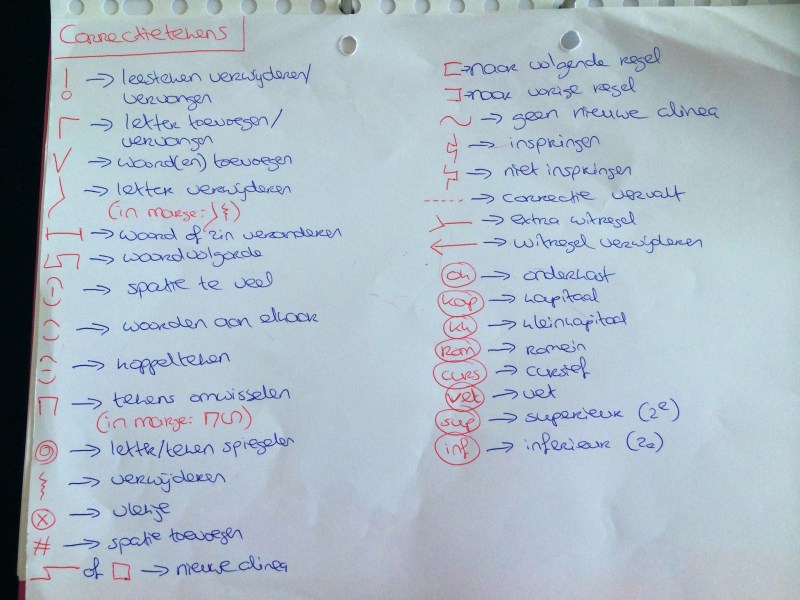 Correctietekens
! → leesteken verwijderen/
vervangen
Γ → letter toevoegen/
vervangen
√ → woord(en) toevoegen
→ letter verwijderen
(in marge: )
→ woord of zin veranderen
→ woordvolgorde
→ spatie te veel
→ woorden aan elkaar
→ koppelteken
⊓ → tekens omwisselen
(in marge: )
→ letter/teken spiegelen
→ verwijderen
ⓧ → vlekje
# → spatie toevoegen
of □ → nieuwe alinea
[ → naar volgende regel
] → naar vorige regel
~ → geen nieuwe alinea
→ inspringen
→ niet inspringen
------ → correctie vervalt
→ extra witregel
← → witregel verwijderen
ok → onderkast
kap → kapitaal
kk → kleinkapitaal
rom → romein
curs → cursief
vet → vet
sup → superieur (2ᵉ)
inf → inferieur (2ₑ)